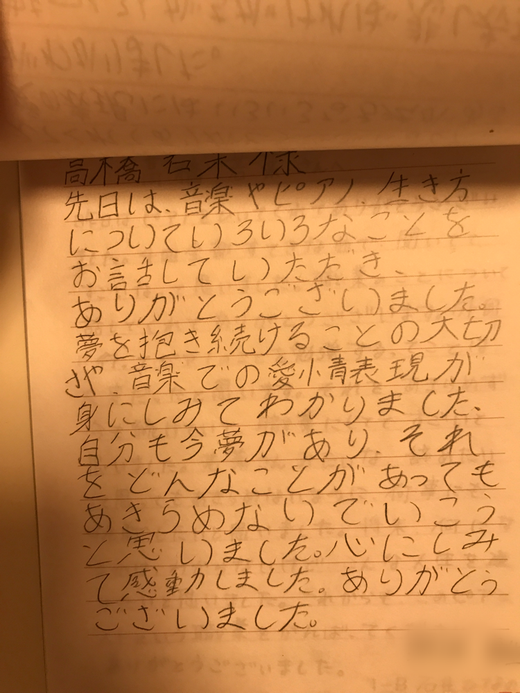 高橋 若菜 様
先日は、音楽やピアノ、生き方
についていろいろなことを
お話していただき、
ありがとうございました。
夢を抱き続けることの大切
さや、音楽での愛情表現が
身にしみてわかりました、
自分も今夢があり、それ
をどんなことがあっても
あきらめないでいこう
と思いました。心にしみ
て感動しました。ありがとう
ございました。